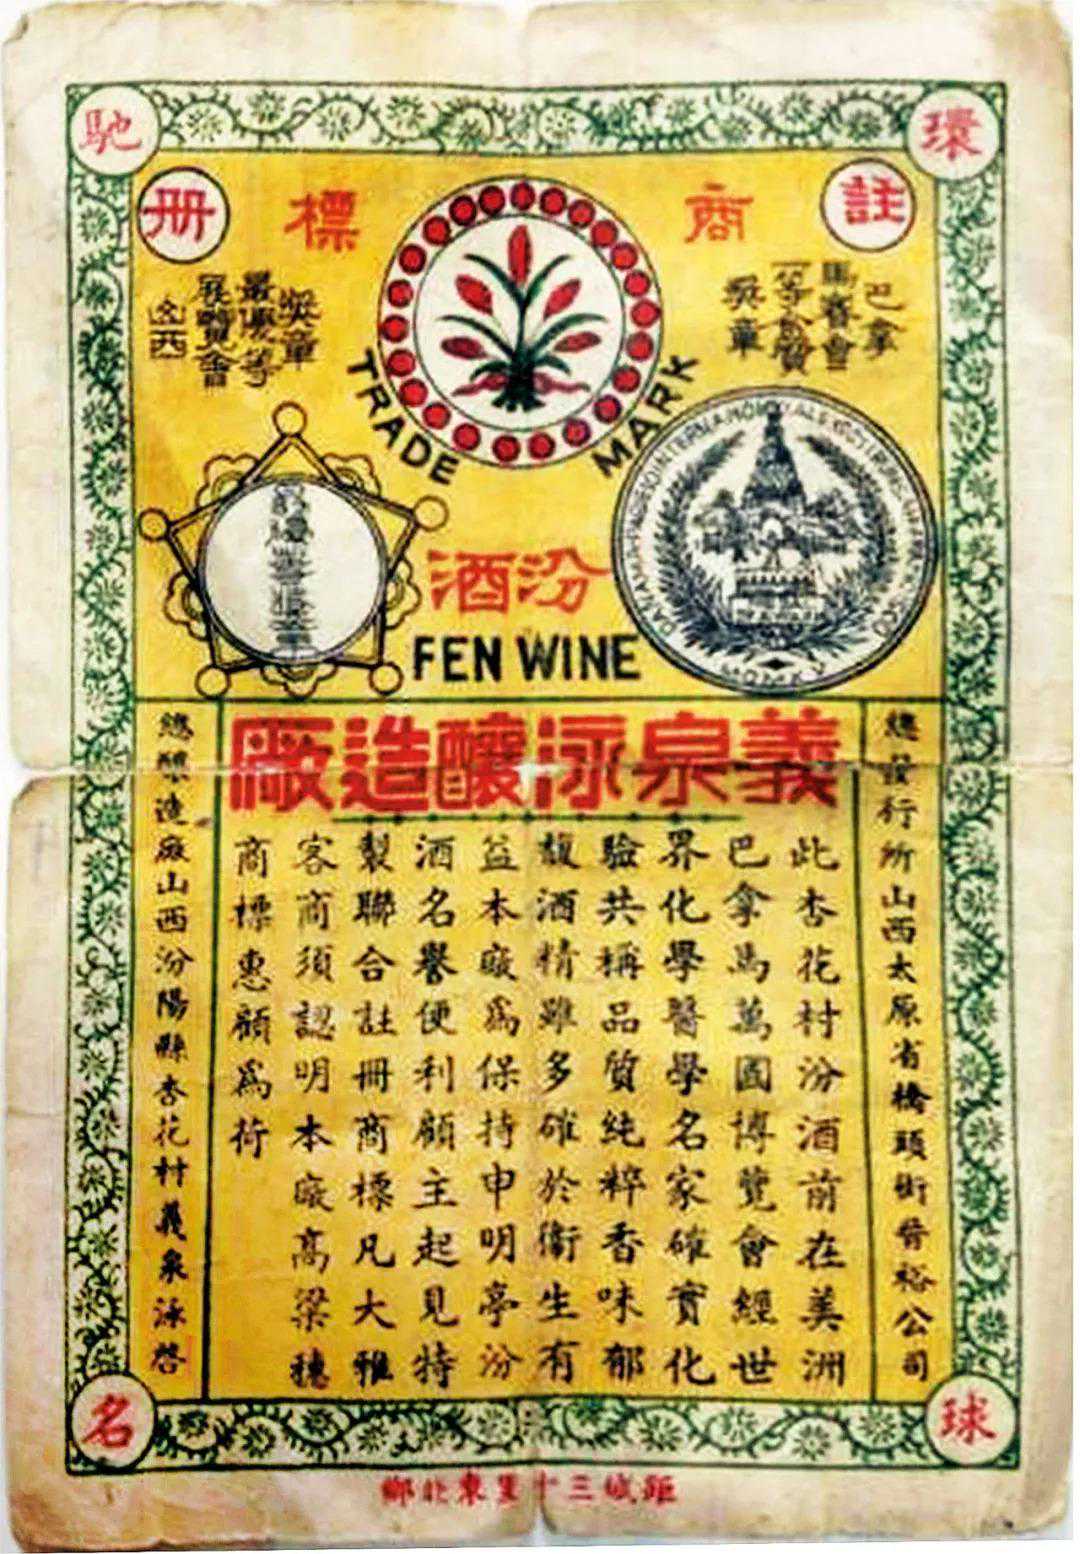 環球馳名
註
商標
冊
巴拿
馬賽會
一等金質
獎章
山西
展覽會
最優等
獎章
TRADE MARK
汾酒
FEN WINE
義泉泳釀造廠
總發行所山西太原省橋頭街晉裕公司
此杏花村汾酒前在美洲
巴拿馬萬國博覽會經世
界化學醫學名家確實化
驗共稱品質純粹香味郁
馥酒精雖多確於衛生有
益本廠爲保持申明亭汾
酒名譽便利顧主起見特
製聯合註冊商標凡大雅
客商須認明本廠高粱穗
商標惠顧爲荷
總釀造廠山西汾陽縣杏花村義泉泳啓
距城三十里東北鄉